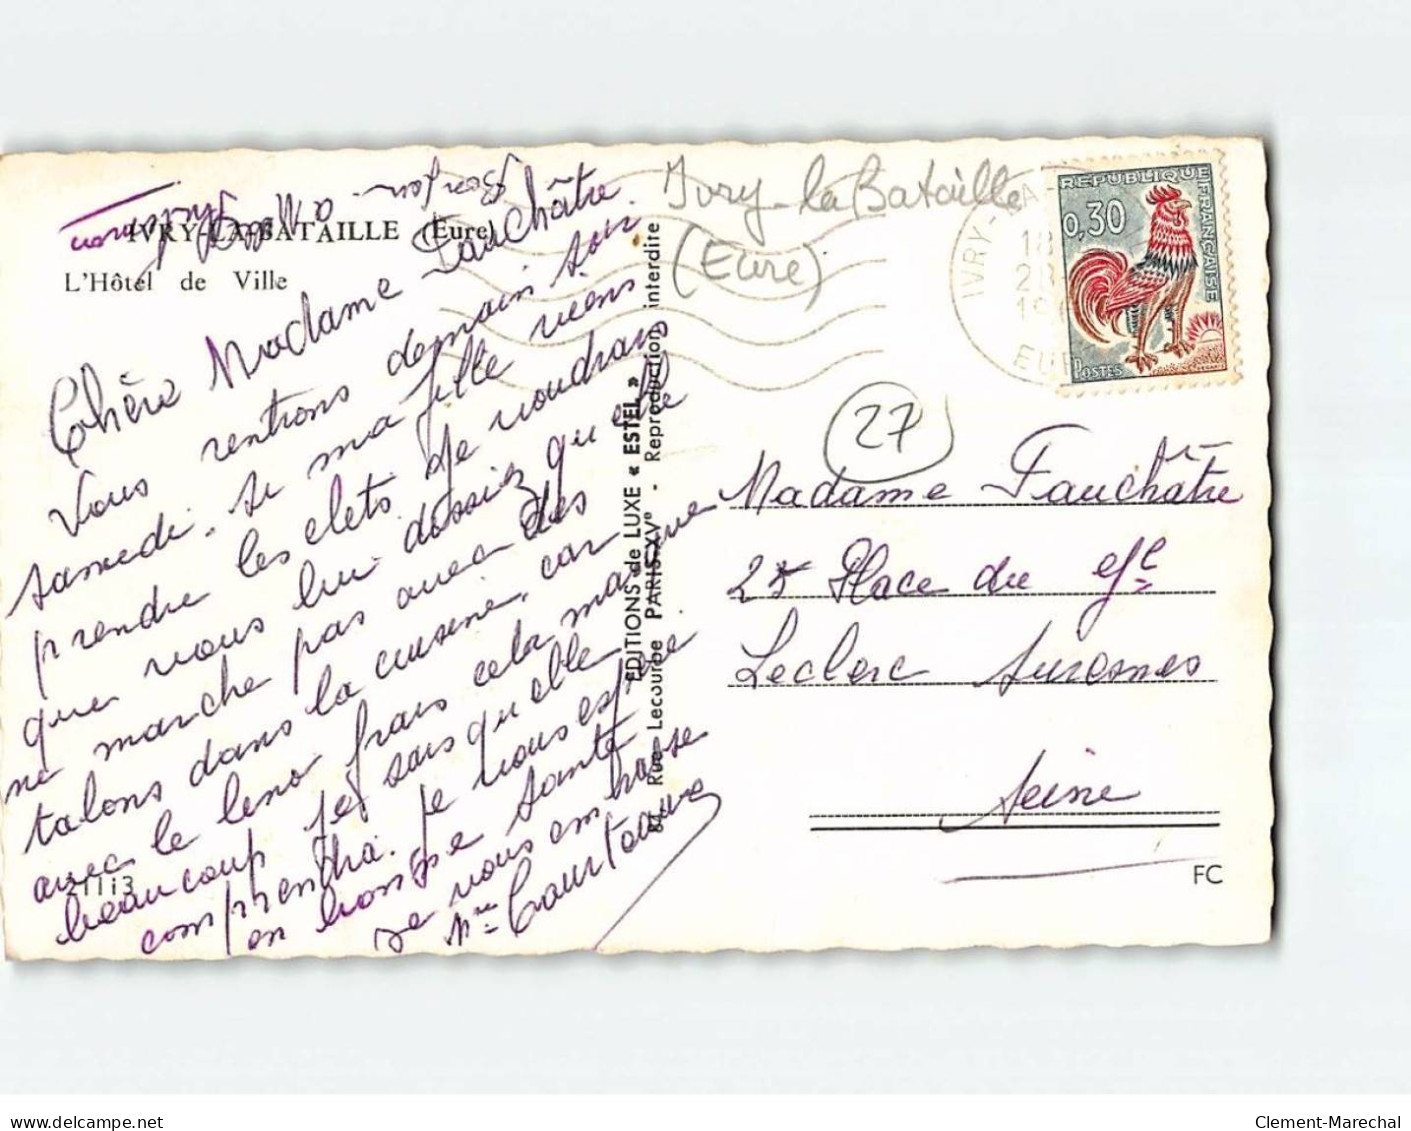 IVRY-LA-BATAILLE (Eure)
L'Hôtel de Ville
Chère Madame Fauchâtre.
Vous rentrons demain soir
samedi. Si ma fille viens
prendre les clets je voudrais
que vous lui dissiez qu'elle
ne marche pas avec des
talons dans la cuisine, car
avec le leno frais cela marque
beaucoup je sais qu'elle
comprendra. Je vous espère
en bonne santé
Je vous embrasse
Mme Courtours
21113
EDITIONS de LUXE « ESTEL »
81 Rue Lecourbe PARIS-XV° - Reproduction interdite
Ivry-la Bataille
(Eure)
IVRY-LA
18
EURE
REPUBLIQUE FRANÇAISE
0,30
POSTES
27
Madame Fauchâtre
28 Place du Gl
Leclerc Suresnes
Seine
FC
www.delcampe.net
Clement-Marechal